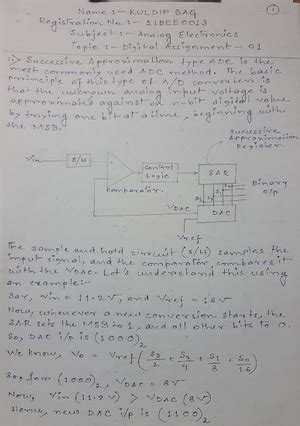 Name :- KULDIP BAG
①
Registration No. :- 21BEE0013
Subject :- Analog Electronics
Topic :- Digital Assignment - 01
1.) Successive Approximation type ADC is the
most commonly used ADC method. The basic
principle of this type of A/D converter is
that the unknown analog input voltage is
approximated against an n-bit digital value
by trying one bit at a time, beginning with
the MSB.
Successive
Approximation
Register.
Vin
S/H
Control
Logic
SAR
comparator.
Binary
O/p
VDAC
DAC
Vref
The sample and hold circuit (S/H) samples the
input signal, and the comparator compares it
with the VDAC. Let's understand this using
an example:-
Say, Vin = 11.2V, and Vref = 16V
Now, whenever a new conversion starts, the
SAR sets the MSB to 1, and all other bits to 0.
So, DAC i/p is (1000)₂
We know, Vo = Vref (S3/2 + S2/4 + S1/8 + S0/16)
So, for (1000)₂, VDAC = 8V
Now, Vin (11.2V) > VDAC (8V)
Hence, new DAC i/p is (1100)₂